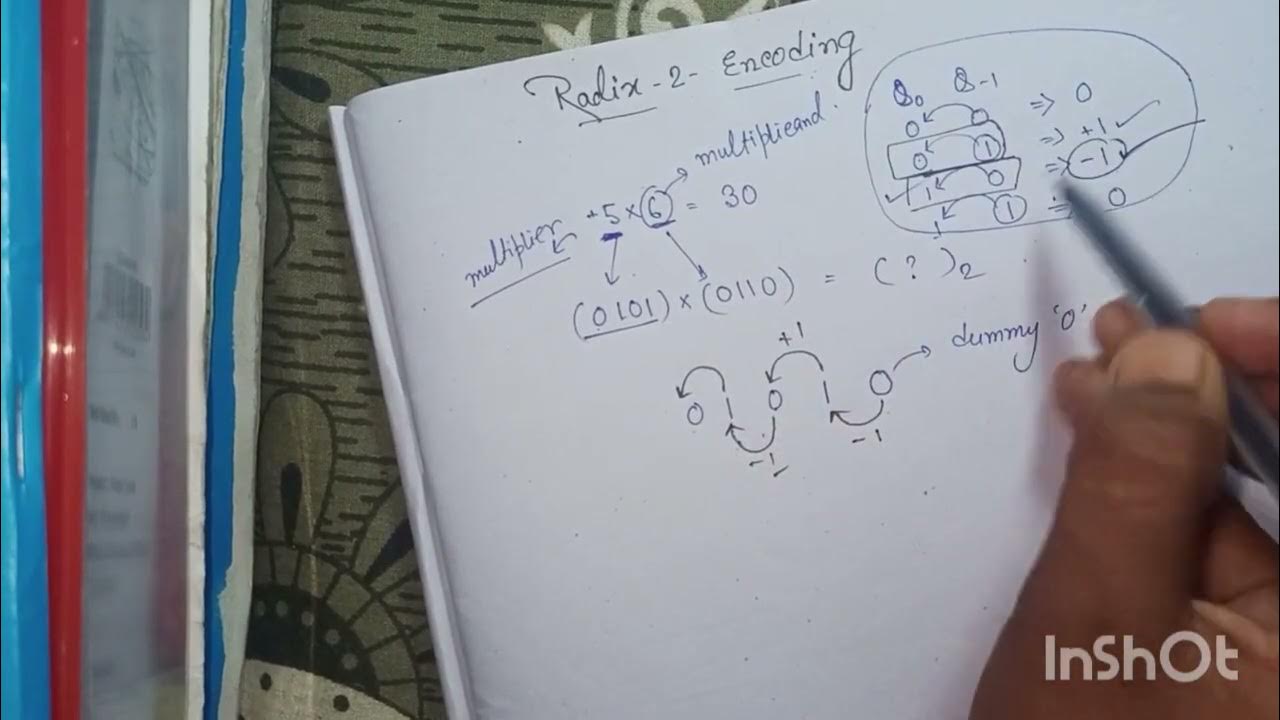 Radix-2- Encoding
multiplicand
multiplier +5 × 6 = 30
(0101) × (0110) = (?)2
Q0 Q-1
0 0 => 0
0 1 => +1
1 0 => -1
1 1 => 0
+1
0 1 0 1 0 dummy '0'
-1 -1
InShOt